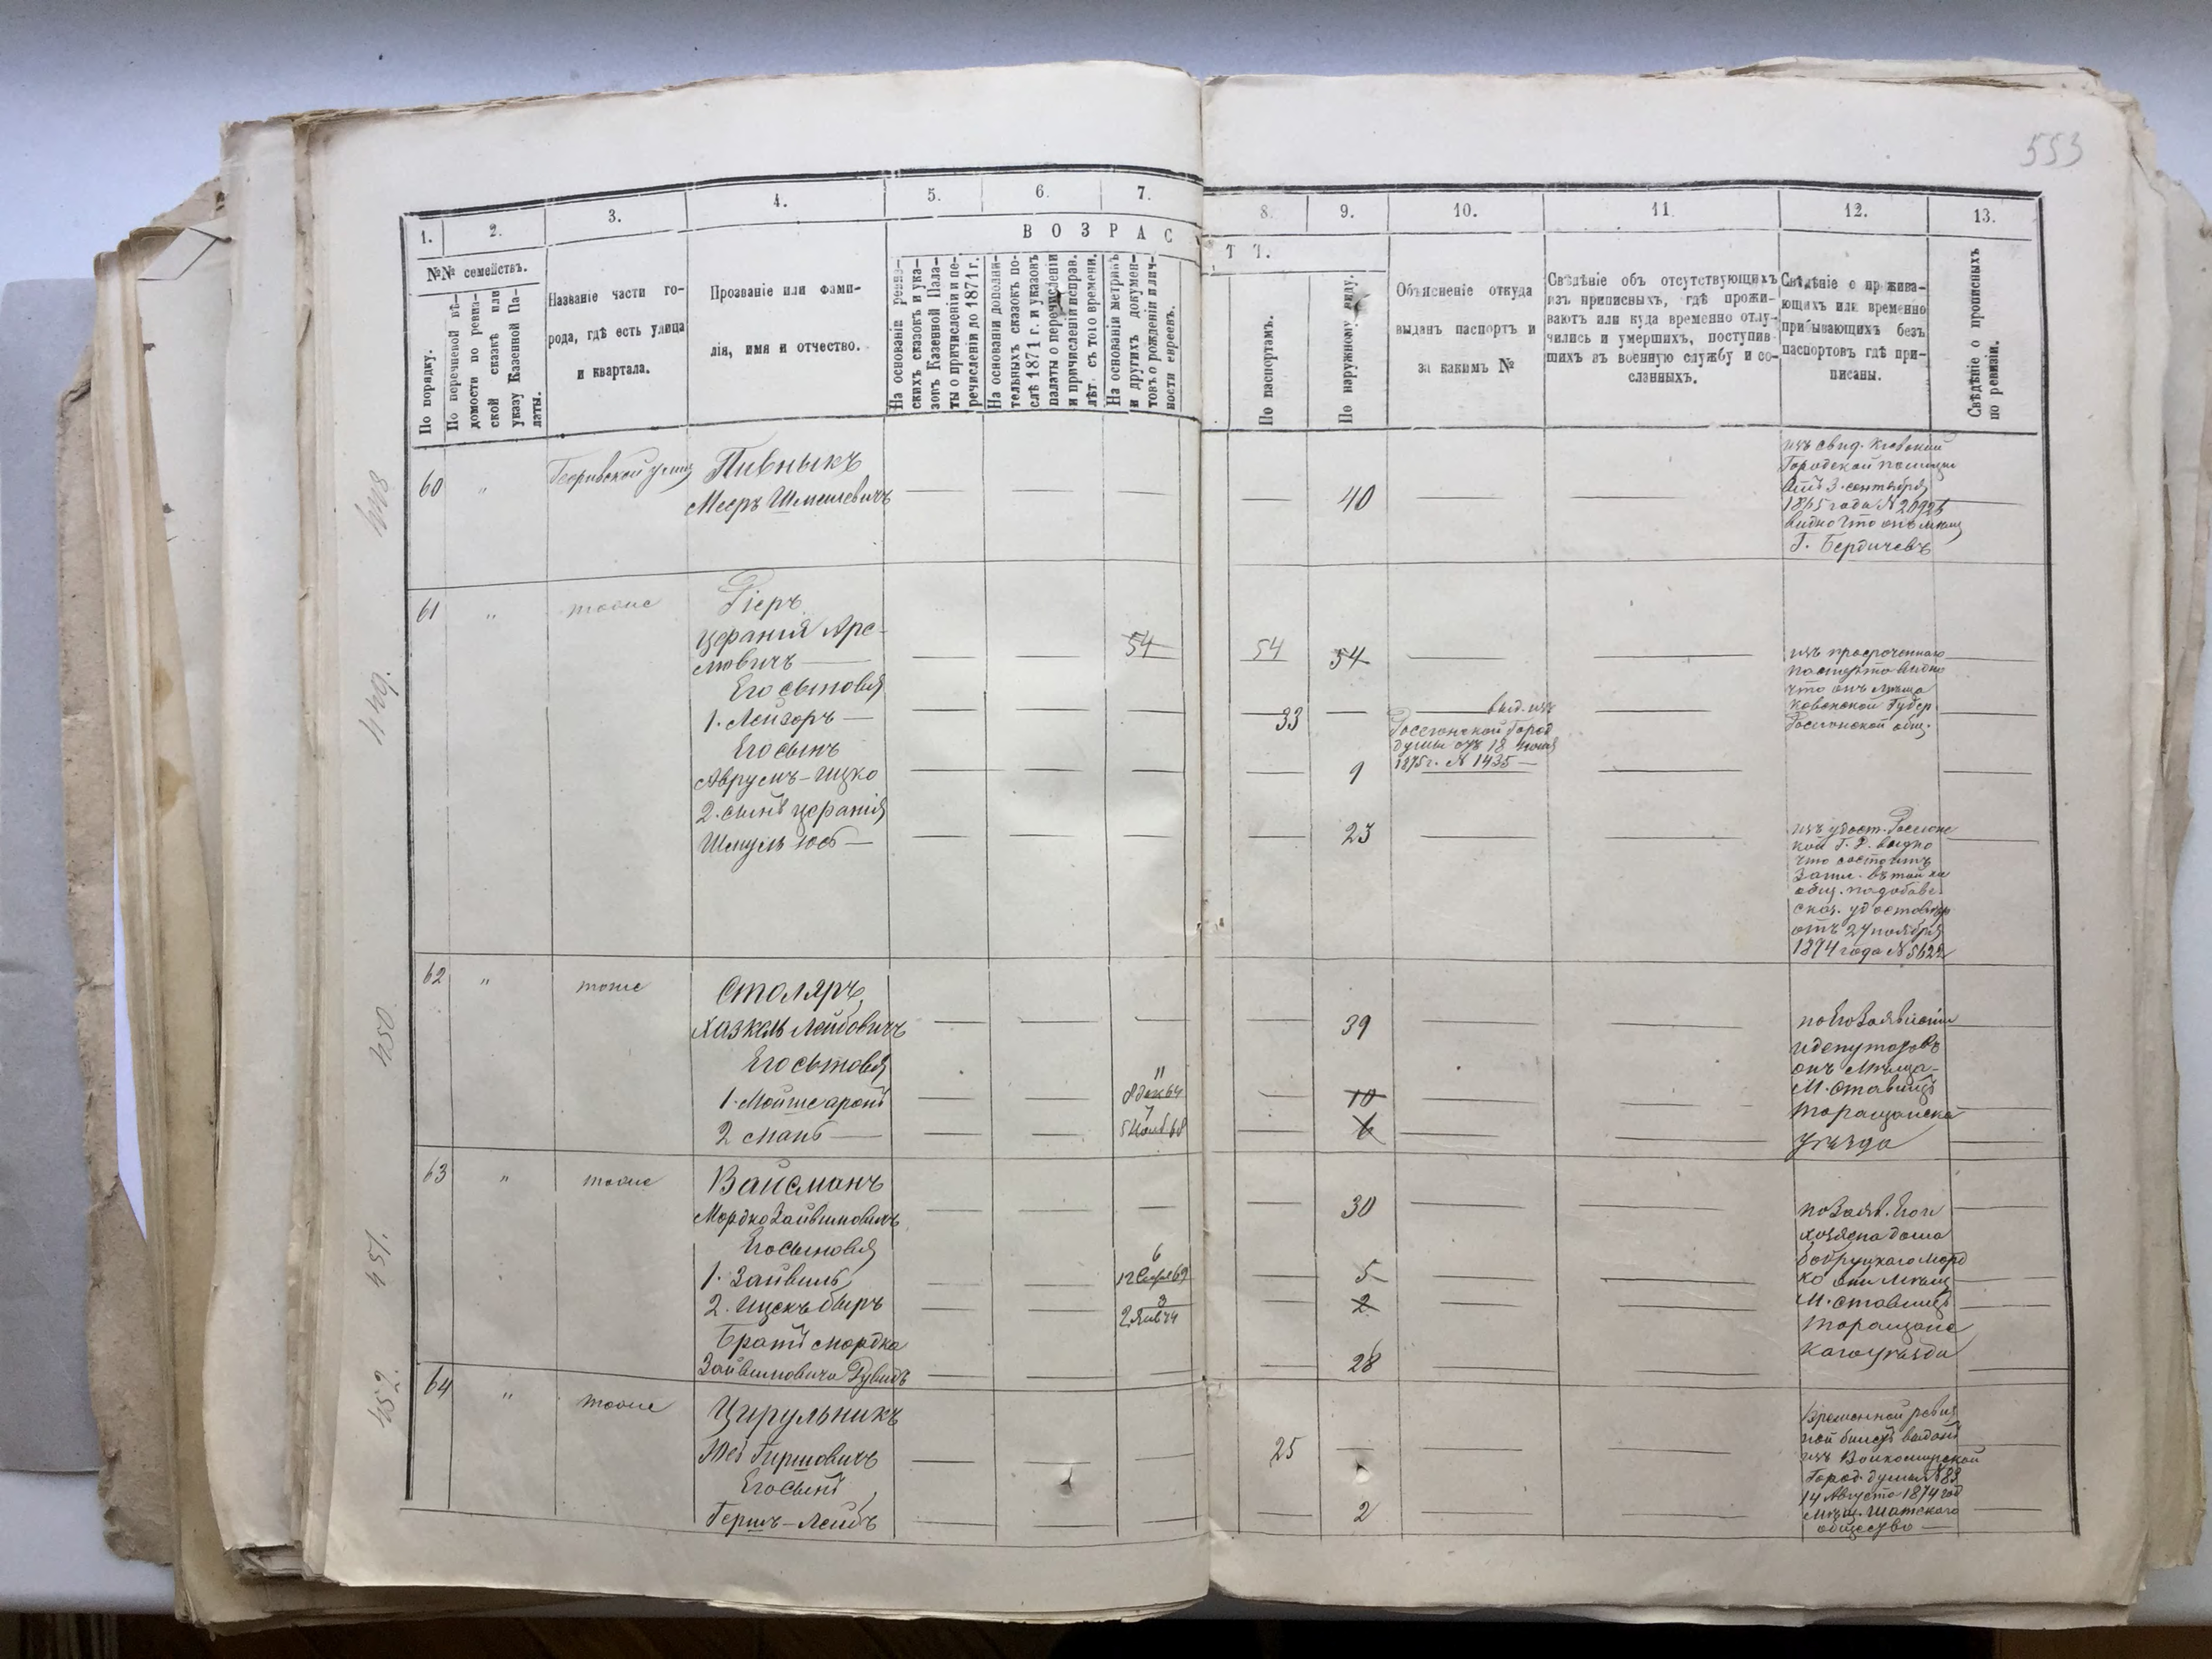 553
1.
2.
3.
4.
5.
6.
7.
8.
9.
10.
11.
12.
13.
№№ семействъ.
ВОЗРАС
ТТ.
По порядку.
По перечневой вѣ-
домости по ревиз-
ской сказкѣ или
указу Казенной Па-
латы.
Названіе части го-
рода, гдѣ есть улица
и квартала.
Прозваніе или фами-
лія, имя и отчество.
На основаніи ревиз-
скихъ сказокъ и ука-
зовъ Казенной Пала-
ты о причисленіи и пе-
речисленіи до 1871 г.
На основаніи дополни-
тельныхъ сказокъ по-
слѣ 1871 г. и указовъ
палаты о перечисленіи
и причисленіи исправ.
лѣт. съ того времени.
На основаніи метрикъ
и другихъ докумен-
товъ о рожденіи и лич-
ности евреевъ.
По паспортамъ.
По наружному виду.
Объясненіе откуда
выданъ паспортъ и
за какимъ №
Свѣдѣніе объ отсутствующихъ
изъ приписныхъ, гдѣ прожи-
ваютъ или куда временно отлу-
чились и умершихъ, поступив
шихъ въ военную службу и со-
сланныхъ.
Свѣдѣніе о прожива-
ющихъ или временно
прибывающихъ безъ
паспортовъ гдѣ при-
писаны.
Свѣдѣніе о прописныхъ
по ревизіи.
60 " Пивныкъ
Мееръ Шмилевичъ — — — — 40 — —
изъ свид. Кіевской
Городской полиціи
отъ 3 сентября
1865 года №
видно что онъ мѣщ
Г. Бердичевъ
449.
61 " тоже
Церанія Аре-
мовичъ — — — 54 54 54 — —
изъ просроченнаго
паспорта видно
что онъ мѣща
Ковенской Губер
Россіенской общ.
Его сыновья
1. Лейзоръ — — — — 33 —
выд. изъ
Россіенской Город
думы отъ 18 
1875 г. № 1435 —
Его сынъ
Аврумъ-Ицко — — — — 9 —
2. сынъ Церанія
Шмуль Іосъ — — — — — 23 — —
изъ удост. Россіен
кой Г. Д. видно
что состоитъ
запис. въ той же
общ. по добавь
сказ. удостовер
отъ 27 ноября
1874 года № 5622
450
62 " тоже Столяръ
Хаскель Лейбовичъ — — — — 39 — —
по его заявленію
и депутатовъ
онъ Мѣща-
М. Ставищъ
Таращанска
уѣзда
Его сыновья
1. Мойше аронъ — — 11 — 10 — —
2 Манъ — — — 7 — 6 — —
451.
63 " тоже Вайсманъ
Мордко Зайвиловичъ — — — — 30 — —
по заяв. Его и
хозяена дома
Бобруцкаго Морд
ко они мѣщ
М. Ставищъ
Таращанс
каго уѣзда
Его сыновья
1. Зайвиль — — 6 — 5 — —
2. Ицекъ беръ — — 3 2 Янв 74 — 2 — —
Братъ Мордка
Зайвиловича Дувидъ — — — — 28 — —
452.
64 " тоже Цирульникъ
Гершовичъ — — — 25 —
Временной ревиз
ной билетъ выданъ
изъ Вилкомирской
Город. думы № 83
14 Августа 1874 год
мѣщ. Шатскаго
общество —
Его сынъ
Гершъ-Лейбъ — — — — 2 — —